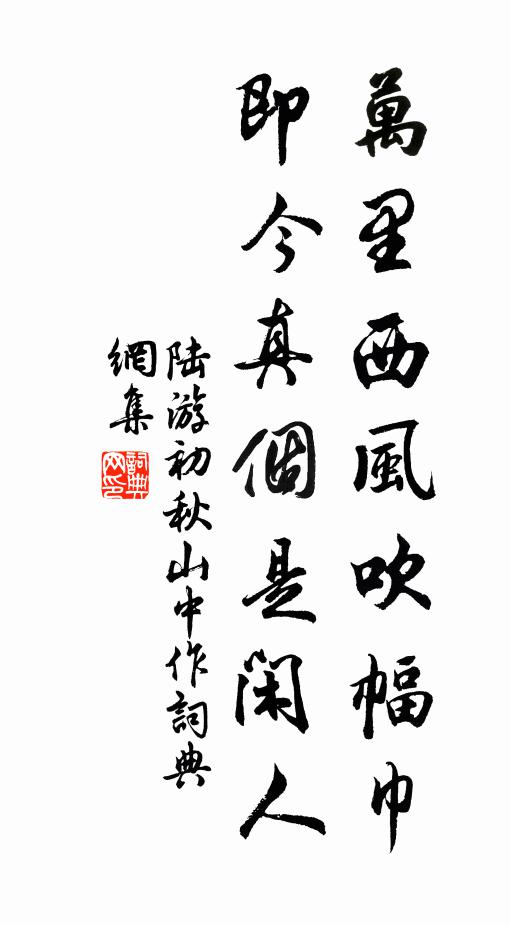 萬里西風吹幅巾
即今真個是閑人
陸游初秋山中作詞典
網集
詞典
网印